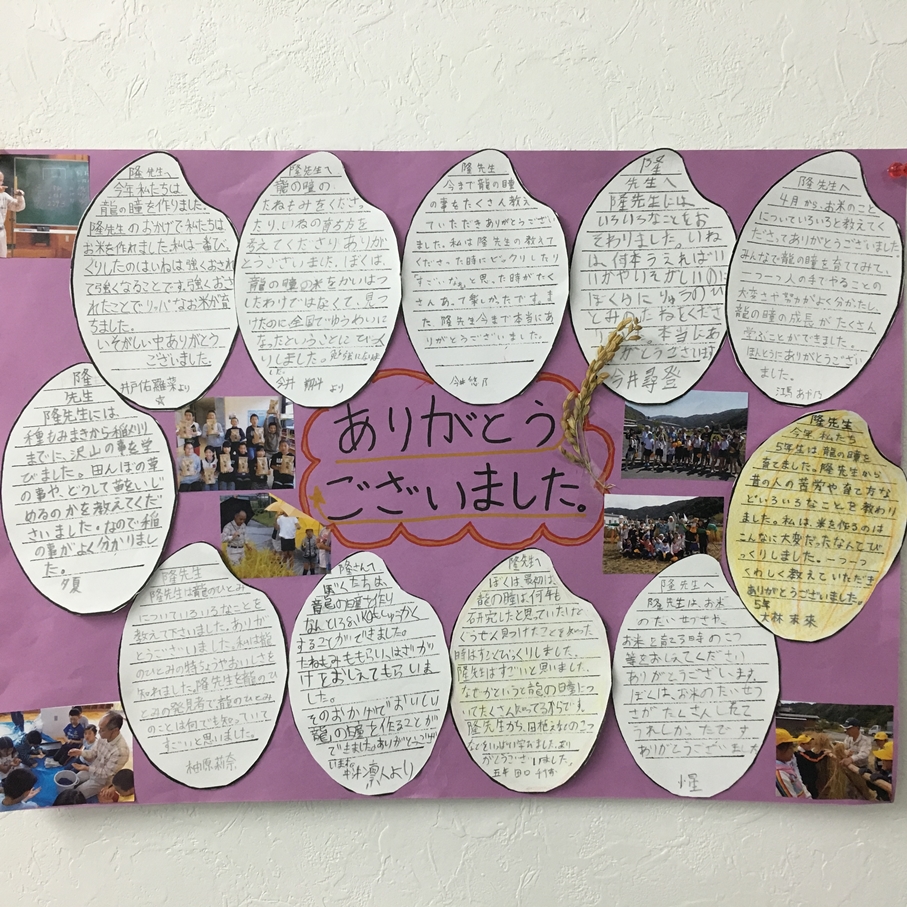 隆先生へ
今年私たちは
龍の瞳を作りました。
隆先生のおかげで私たちは
お米を作れました。私は一番び
くりしたのはいねは強くおされ
て強くなることです。強くおさ
れたことでりっぱなお米が育
ちました。
いそがしい中ありがとう
ございました。
隆先生へ
龍の瞳の
たねもみをくださっ
たり、いねの育ち方を
教えてくださりありが
とうございました。ぼくは、
龍の瞳の米をかいはつ
したわりではなくて、見つ
けたのに全国でゆうめいに
なったということにびっく
りしました。
今井 より
隆先生
今まで龍の瞳
の事をたくさん教え
ていただきありがとうござい
ました。私は隆先生の教えて
くださった時にビックリしたり
「すごいなぁ。」と思った時がたく
さんあって楽しかったです。ま
た隆先生今まで本当にあ
りがとうございました。
隆
先生へ
隆先生には
いろいろなことをお
そわりました。いね
は、何本うえればい
いかやいそがしい
ぼくらにりゅうのひ
とみのたねをくださ
本当にあ
今井尋登
隆先生へ
4月から、お米のこと
についていろいろと教えてく
ださってありがとうございました。
みんなで龍の瞳を育ててみて、
一つ一つ人の手でやることの
大変さ がよく分かったし、
龍の瞳の成長がたくさん
学ぶことができました。
ほんとうにありがとうござい
ました。
隆
先生
隆先生には、
種もみまきから稲刈り
までに、沢山の事を学
びました。田んぼの草
の事や、どうして苗をいじ
めるのかを教えてくだ
さいました。なので稲
の事がよく分かりまし
た。
夏
ありがとう
ございました。
隆先生
今年私たち
5年生は龍の瞳を
育てました。隆先生から
昔の人の苦労や育て方な
どいろいろなことを教わり
ました。私は、米を作るのは
こんなに大変だったなんてび
っくりしました。一つ一つ
くわしく教えていただき
ありがとうございました。
5年
大林 未来
隆先生
隆先生は龍のひとみ
についていろいろなことを
教えて下さいました。ありが
とうございました。私は龍
のひとみの特ちょうやおいしさを
知れました。隆先生を龍のひ
とみの発見者で、龍のひとみ
のことは何でも知っていて
すごいと思いました。
柚原莉奈
隆さんへ
ぼくたちは、
龍の瞳を作り
なんと kgもしゅうかく
することができました。
たねもみももらい、はざか
けをおしえてもらいま
した。
そのおかげでおいしい
龍の瞳を作ることが
できました。ありがとうござい
より
隆先生へ
ぼくは、最初は、
龍の瞳は何年も
研究したと思っていたけど
ぐうぜん見つけたことを知った
時はすごくびっくりしました。
隆先生はすごいと思いました。
なぜかというと龍の瞳につ
いてたくさん知ってるからです。
隆先生から、田植えなどのこつ
などをいっぱい学びました。あり
がとうございました。
五年
隆先生へ
隆先生は、お米
のたいせつさや、
お米を 時のこつ
等をおしえてください
ありがとうございます。
ぼくは、お米のたいせつ
さがたくさんしれて
うれしかったです
ありがとうございました